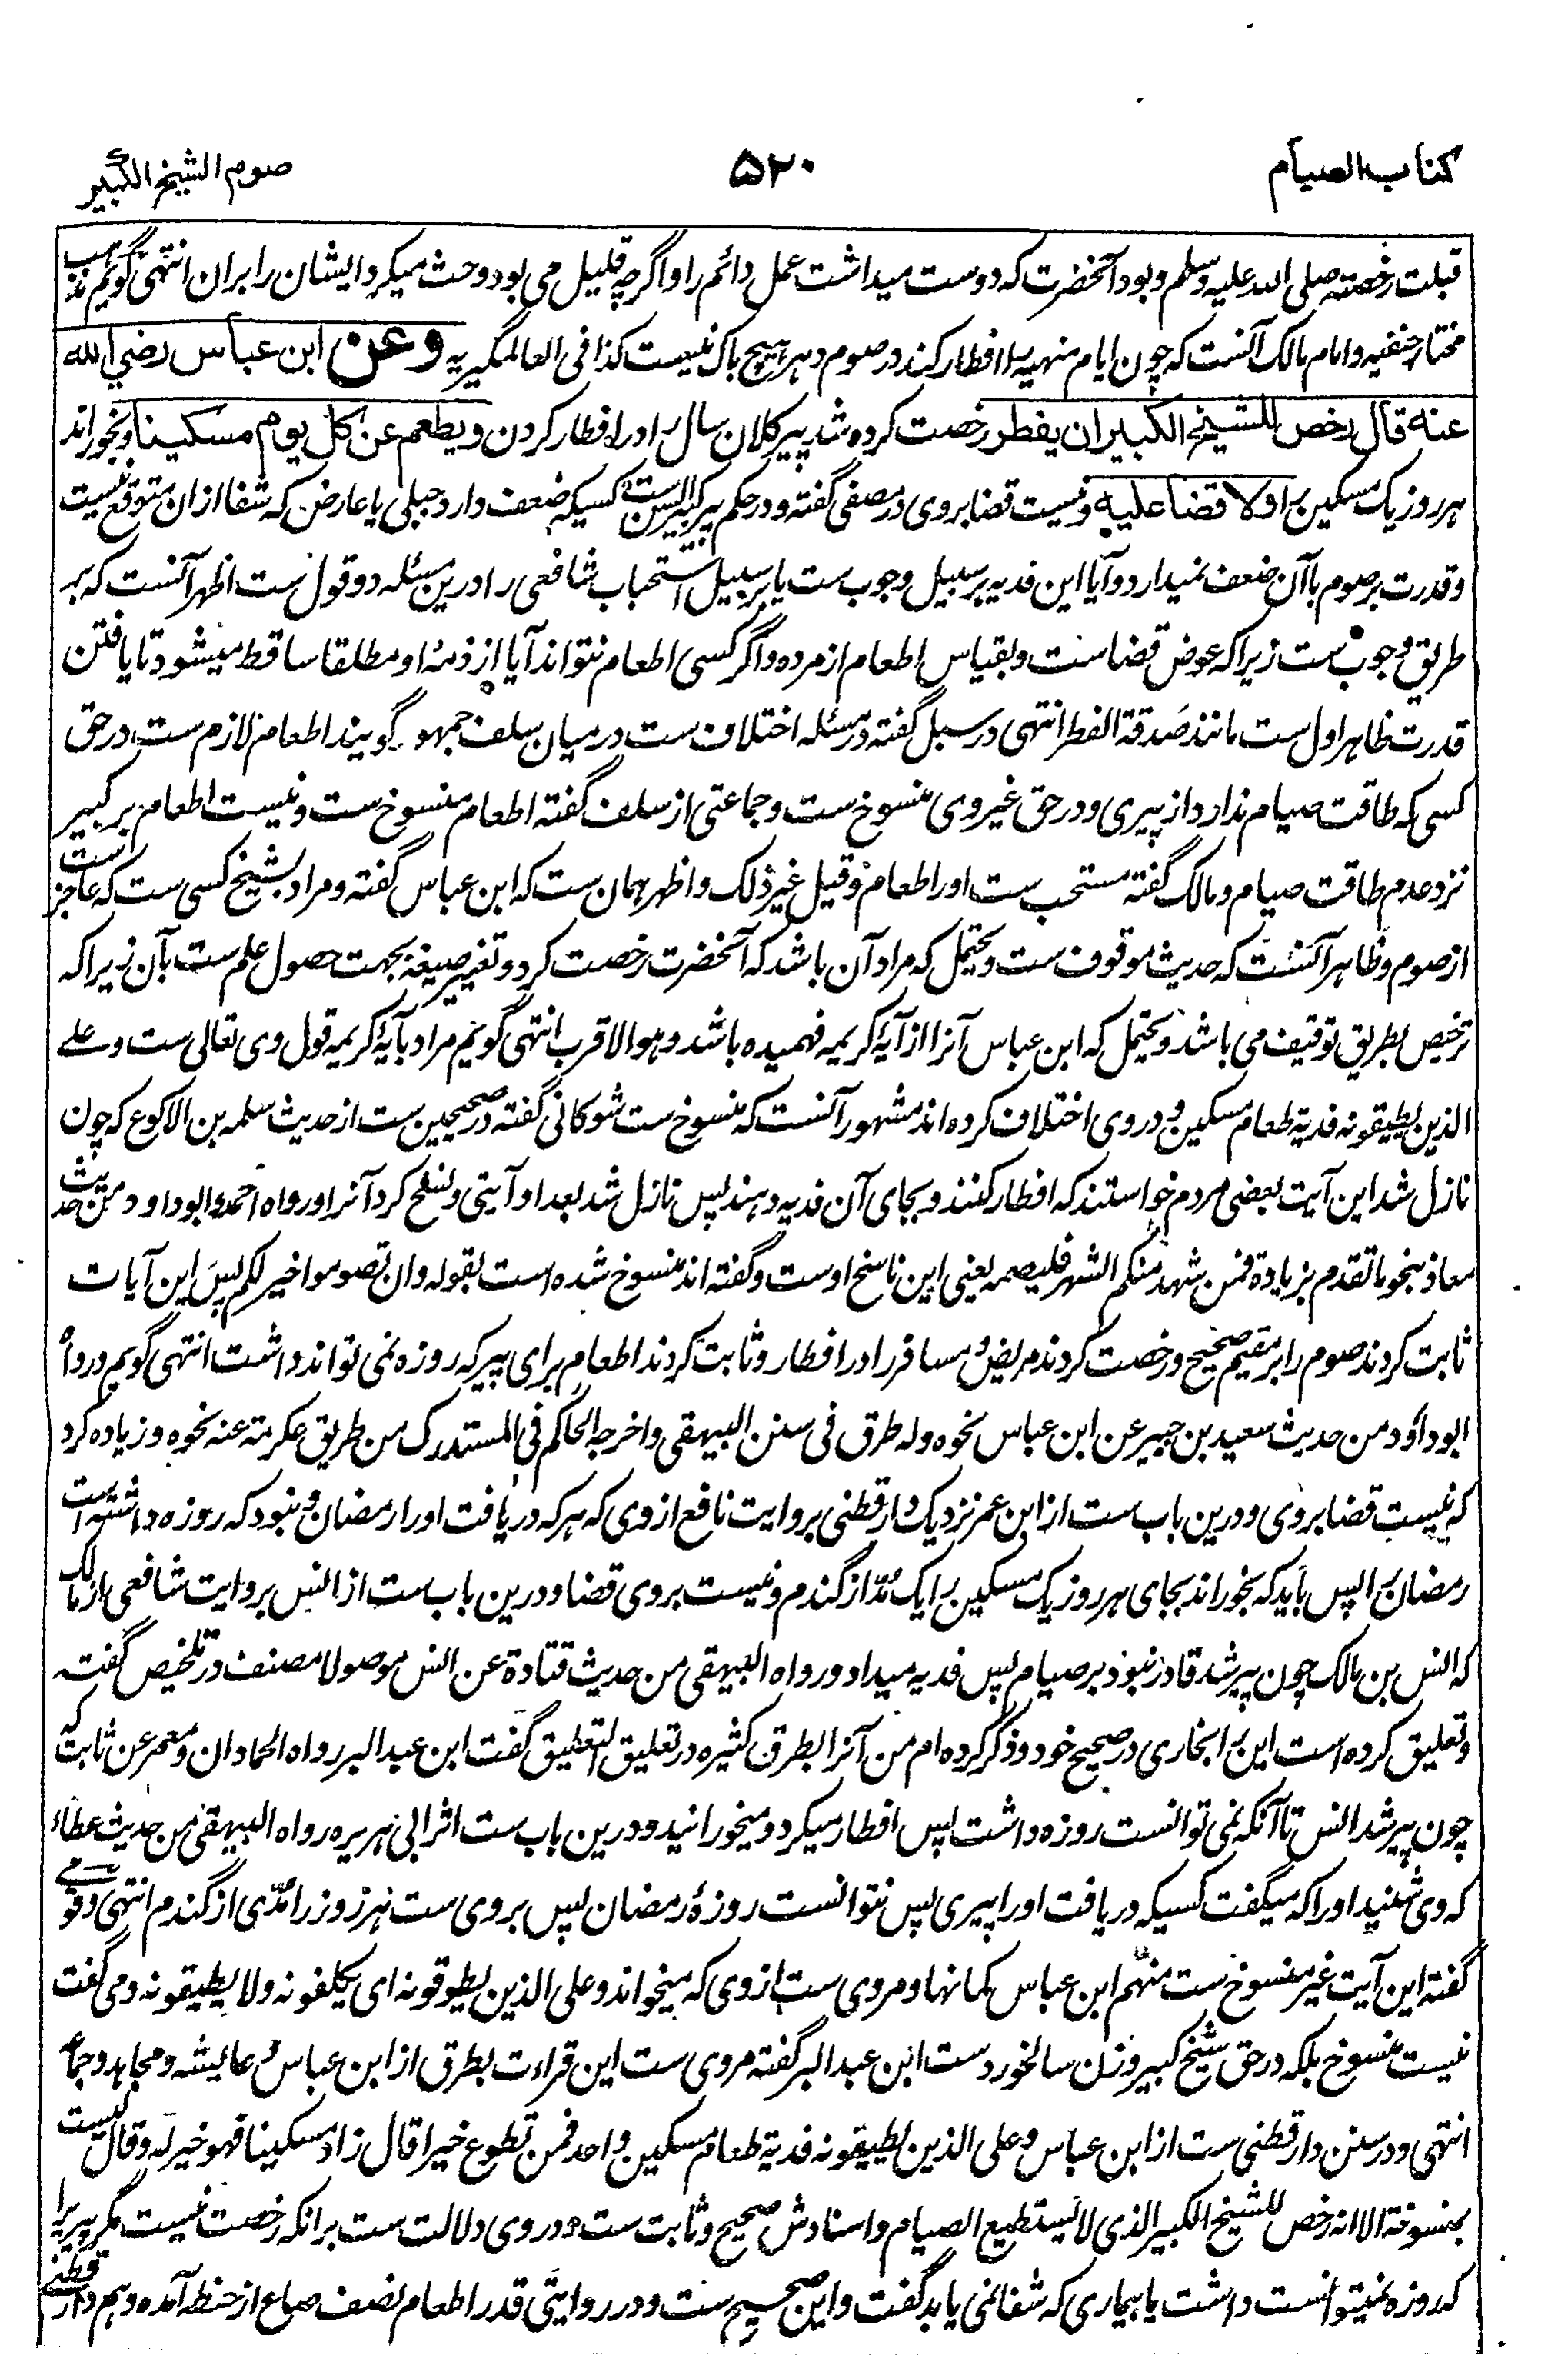 كتاب الصيام
۵۲۰
صوم الشيخ الكبير
قبلت رخصته صلی الله علیه وسلم و بود آنحضرت که دوست میداشت عمل دائم را و اگرچه قلیل می بود و حث میکرد ایشان را بران انتهی گویم مذهب
مختار حنفیه و امام مالک آنست که چون ایام منهیه را افطار کند در صوم دهر هیچ باک نیست کذا فی العالمگیریه وعن ابن عباس رضي الله
عنه قال رخص للشيخ الكبير ان يفطر رخصت کرده شد پیر کلان سال را در افطار کردن ويطعم عن كل يوم مسكينا و بخوراند
هر روز یک مسکین را ولا قضا عليه و نیست قضا بروی در مصفی گفته و در حکم پیر کبیر السن ست کسیکه ضعف دارد جبلی یا عارض که شفا ازان متوقع نیست
و قدرت بر صوم با آن ضعف نمیدارد و آیا این فدیه بر سبیل وجوب ست یا بر سبیل استحباب شافعی را درین مسئله دو قول ست اظهر آنست که بر
طریق وجوب ست زیرا که عوض قضاست و بقیاس اطعام از مرده و اگر کسی اطعام نتواند آیا از ذمهٔ او مطلقا ساقط میشود تا یافتن
قدرت ظاهر اول ست مانند صدقة الفطر انتهی در سبل گفته در مسئله اختلاف ست در میان سلف جمهور گویند اطعام لازم ست در حق
کسی که طاقت صیام ندارد از پیری و در حق غیر وی منسوخ ست و جماعتی از سلف گفته اطعام منسوخ ست و نیست اطعام بر کبیر
نزد عدم طاقت صیام و مالک گفته مستحب ست او را اطعام و قیل غیر ذلک و اظهر همان ست که ابن عباس گفته و مراد بشیخ کسی ست که عاجز است
از صوم و ظاهر آنست که حدیث موقوف ست و یحتمل که مراد آن باشد که آنحضرت رخصت کرد و تغییر صیغه بجهت حصول علم ست بآن زیرا که
ترخیص بطریق توقیف می باشد و یحتمل که ابن عباس آنرا از آیهٔ کریمه فهمیده باشد و هو الاقرب انتهی گویم مراد بآیهٔ کریمه قول وی تعالی ست وعلے
الذين يطيقونه فدية طعام مسكين و در وی اختلاف کرده اند مشهور آنست که منسوخ ست شوکانی گفته در صحیحین ست از حدیث سلمه بن الاکوع که چون
نازل شد این آیت بعضی مردم خواستند که افطار کنند و بجای آن فدیه دهند پس نازل شد بعد او آیتی و نسخ کرد آنرا و رواه احمد و ابو داود من حدیث
معاذ بنحو ما تقدم بزیادة فمن شهد منكم الشهر فليصمه یعنی این ناسخ اوست و گفته اند منسوخ شده است بقوله وان تصوموا خير لكم پس این آیات
ثابت کردند صوم را بر مقیم صحیح و رخصت کردند مریض و مسافر را در افطار و ثابت کردند اطعام برای پیر که روزه نمی تواند داشت انتهی گویم و رواه
ابو داود من حدیث سعید بن جبیر عن ابن عباس نحوه وله طرق فی سنن البیهقی و اخرجه الحاکم فی المستدرک من طریق عکرمة عنه نحوه و زیاده کرد
که نیست قضا بروی و درین باب ست از ابن عمر نزدیک دارقطنی بروایت نافع از وی که هرکه دریافت او را رمضان و نبود که روزه داشته است
رمضان را پس باید که بخوراند بجای هر روز یک مسکین را یک مُد از گندم و نیست بروی قضا و درین باب ست از انس بروایت شافعی از مالک
که انس بن مالک چون پیر شد قادر نبود بر صیام پس فدیه میداد و رواه البیهقی من حدیث قتادة عن انس موصولا مصنف در تلخیص گفته
و تعلیق کرده است این را بخاری در صحیح خود و ذکر کرده ام من آنرا بطرق کثیره در تعلیق التعلیق گفت ابن عبد البر رواه الحمادان و معمر عن ثابت که
چون پیر شد انس تا آنکه نمی توانست روزه داشت پس افطار میکرد و میخورانید و درین باب ست اثر ابی هریره رواه البیهقی من حدیث عطاء
که وی شنید او را که میگفت کسیکه دریافت او را پیری پس نتوانست روزهٔ رمضان پس بروی ست هر روز را مُدّی از گندم انتهی و قومے
گفته این آیت غیر منسوخ ست منهم ابن عباس کما نها و مروی ست از وی که میخواند وعلى الذين يطوقونه ای یکلفونه ولا یطیقونه و می گفت
نیست منسوخ بلکه در حق شیخ کبیر و زن سالخورد ست ابن عبد البر گفته مروی ست این قراءت بطرق از ابن عباس و عایشه و مجاهد و جماعة
انتهی و در سنن دارقطنی ست از ابن عباس وعلى الذين يطيقونه فدية طعام مسكين واحد فمن تطوع خيرا قال زاد مسكينا فهو خير له وقال ليست
بمنسوخة الا انه رخص للشيخ الكبير الذی لا يستطيع الصيام و اسنادش صحیح و ثابت ست و در وی دلالت ست برانکه رخصت نیست مگر پیر را
که روزه نمیتوانست داشت یا بیماری که شفا نمی یابد گفت و این صحیح ست و در روایتی قدر اطعام نصف صاع از حنطه آمده و هم دارقطنی